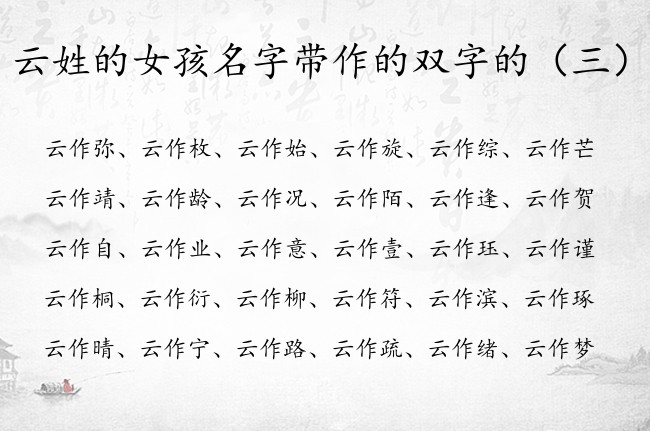 云姓的女孩名字带作的双字的（三）
云作弥、云作枚、云作始、云作旋、云作综、云作芒
云作靖、云作龄、云作况、云作陌、云作逢、云作贺
云作自、云作业、云作意、云作壹、云作珏、云作谨
云作桐、云作衍、云作柳、云作符、云作滨、云作琢
云作晴、云作宁、云作路、云作疏、云作绪、云作梦